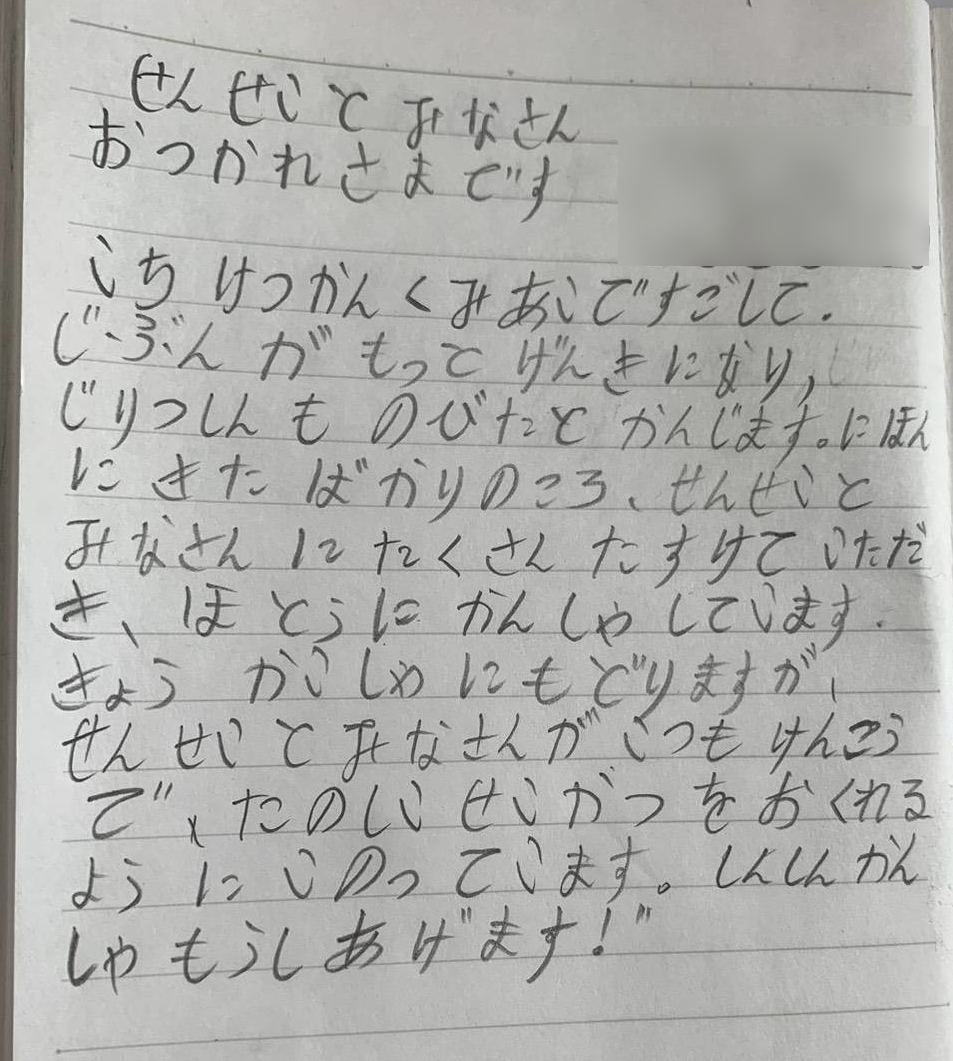 せんせいとみなさん
おつかれさまです
いちけつかんくみあいですごして.
じぶんがもっとげんきになり,
じりつしんものびたとかんじます。にほん
にきたばかりのころ、せんせいと
みなさんにたくさんたすけていただ
き、ほとうにかんしゃしています.
きょうかいしゃにもどりますが、
せんせいとみなさんがいつもけんこう
で、たのしいせいかつをおくれる
ようにいのっています。しんしんかん
しゃもうしあげます!"